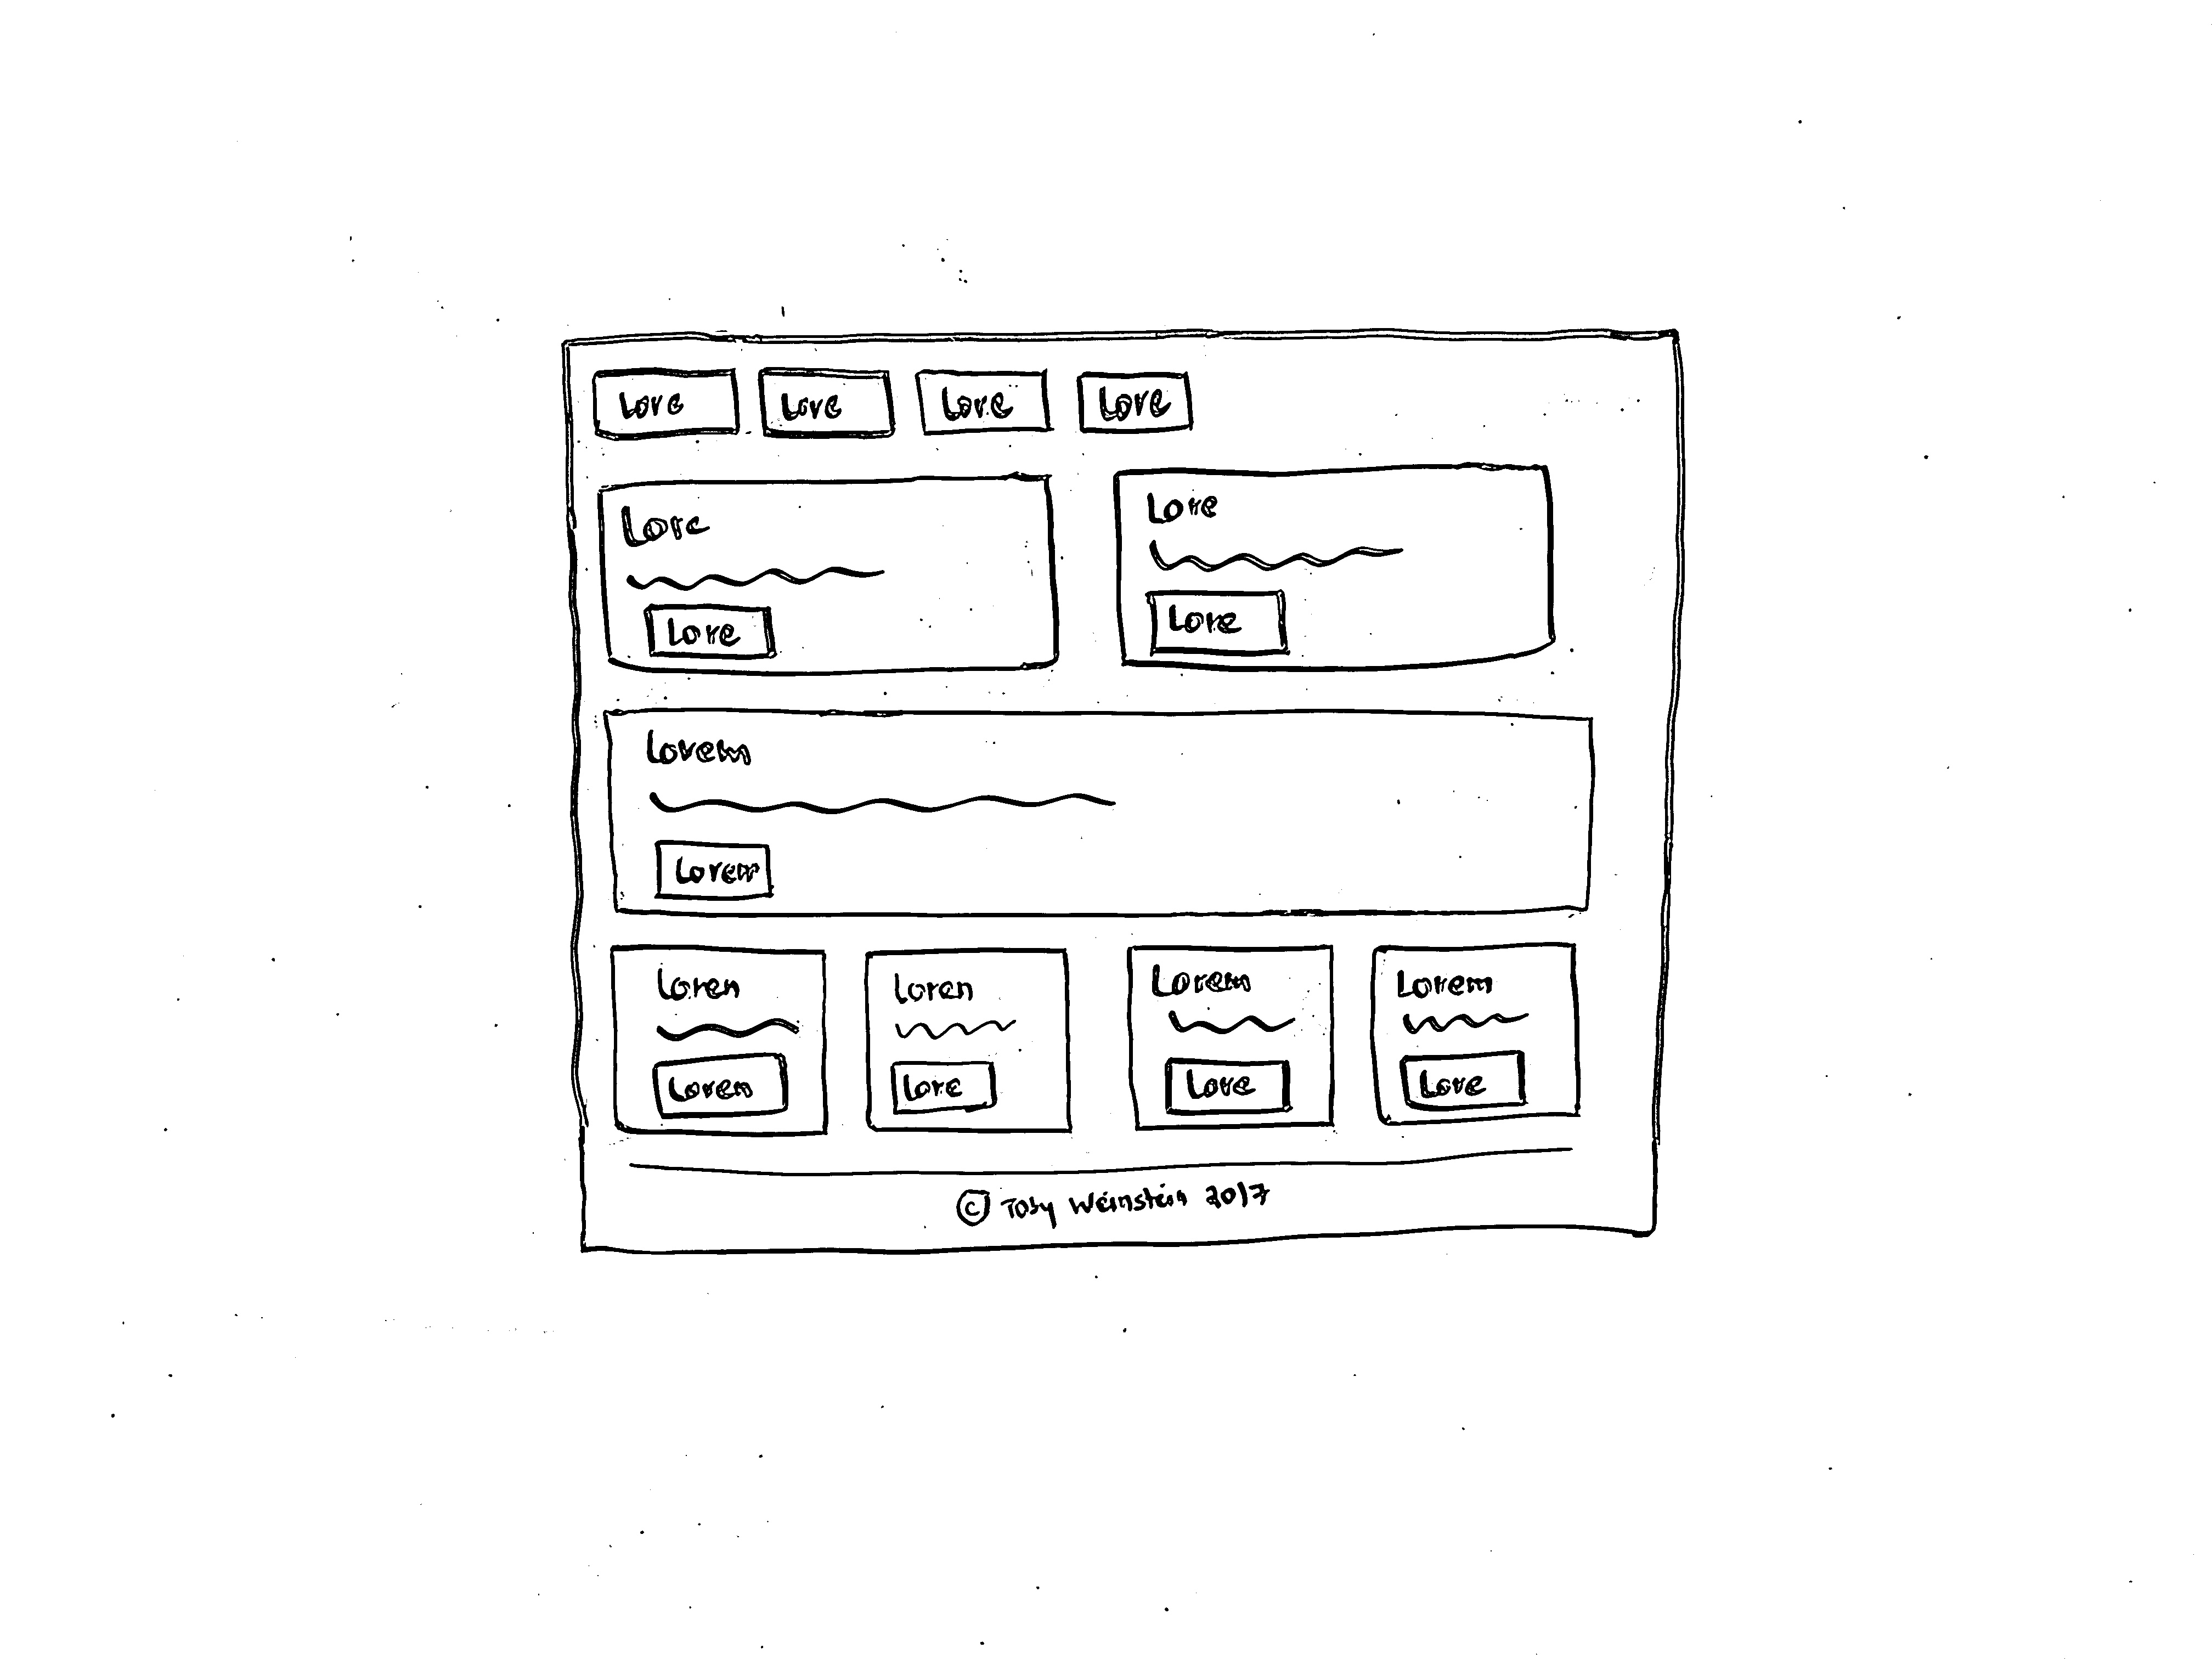 Lore Lore Lore Lore
Lore
Lore
Lore
Lore
Lorem
Lorem
Loren
Loren
Loren
Lore
Lorem
Lore
Lorem
Lore
© Toby Weinstein 2017